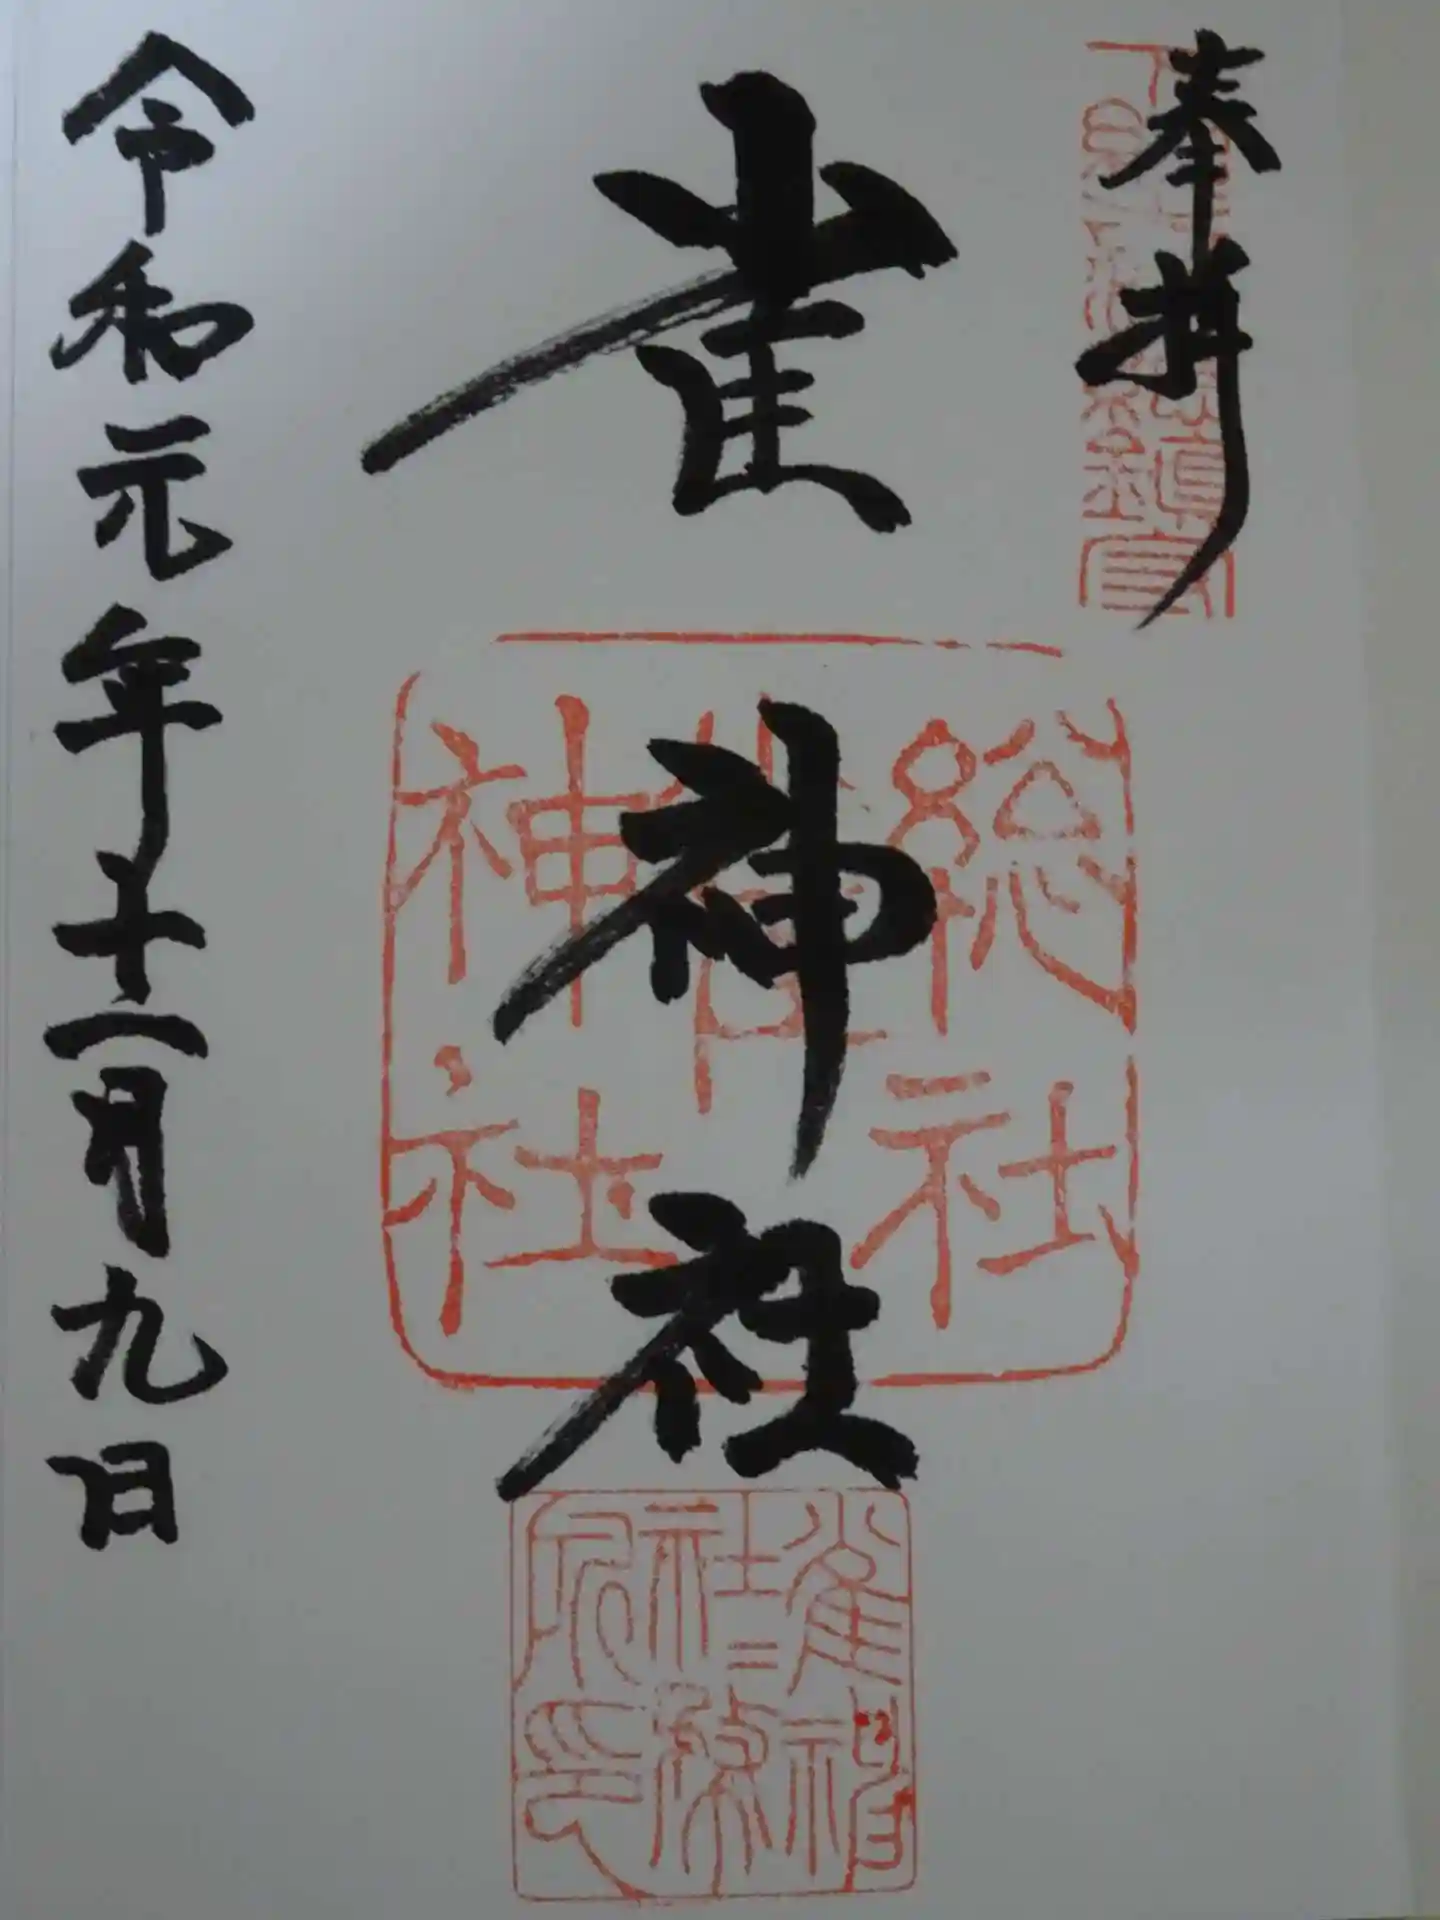 奉拝
雀神社
総社
雀
神社
雀神
社務
所印
令和元年十二月九日